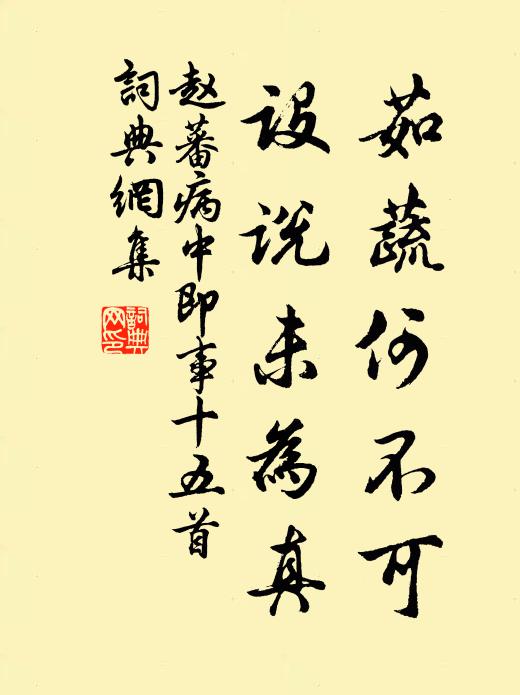 茹蔬何不可
設説未為真
赵蕃病中即事十五首
詞典網集
詞典网印